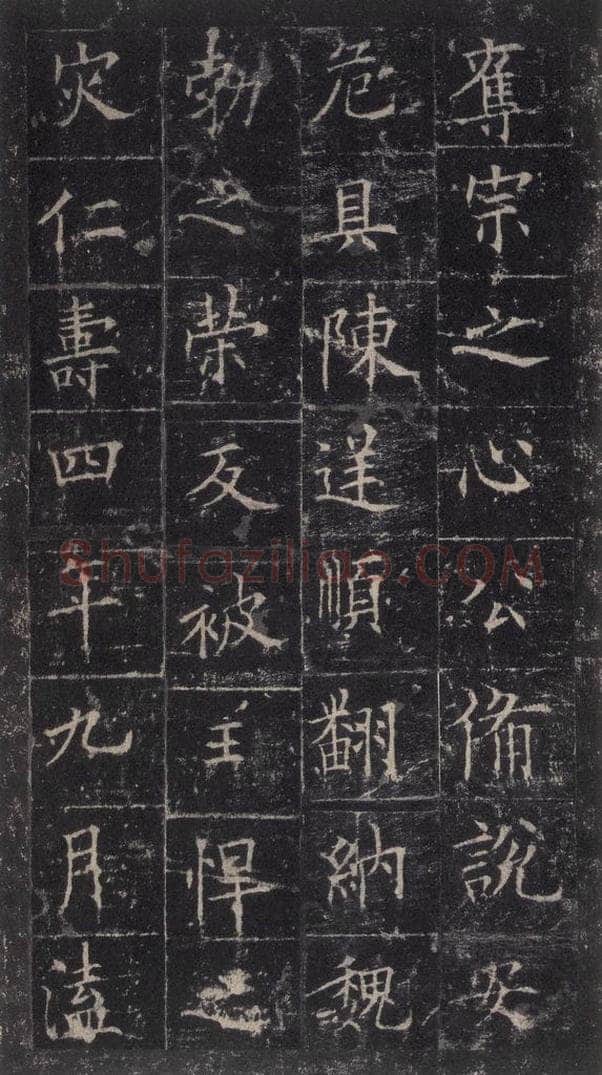 奪宗之心公備說安
危具陳逆順翻納魏
勃之榮反被王悍之
灾仁壽四年九月溘
Shufaziliao.COM